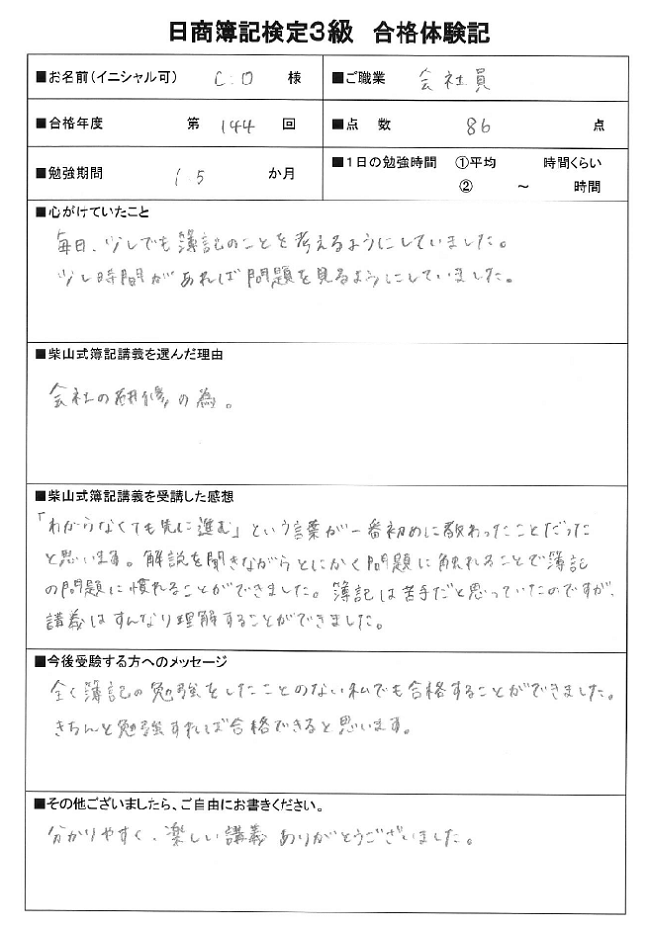 日商簿記検定3級 合格体験記
■お名前(イニシャル可) C.O 様 ■ご職業 会社員
■合格年度 第 144 回 ■点 数 86 点
■勉強期間 1.5 か月 ■1日の勉強時間 ①平均 時間くらい
② ～ 時間
■心がけていたこと
毎日、少しでも簿記のことを考えるようにしていました。
少し時間があれば問題を見るようにしていました。
■柴山式簿記講義を選んだ理由
会社の研修の為。
■柴山式簿記講義を受講した感想
「わからなくても先に進む」という言葉が一番初めに教わったことだった
と思います。解説を聞きながらとにかく問題に触れることで簿記
の問題に慣れることができました。簿記は苦手だと思っていたのですが、
講義はすんなり理解することができました。
■今後受験する方へのメッセージ
全く簿記の勉強をしたことのない私でも合格することができました。
きちんと勉強すれば合格できると思います。
■その他ございましたら、ご自由にお書きください。
分かりやすく、楽しい講義ありがとうございました。